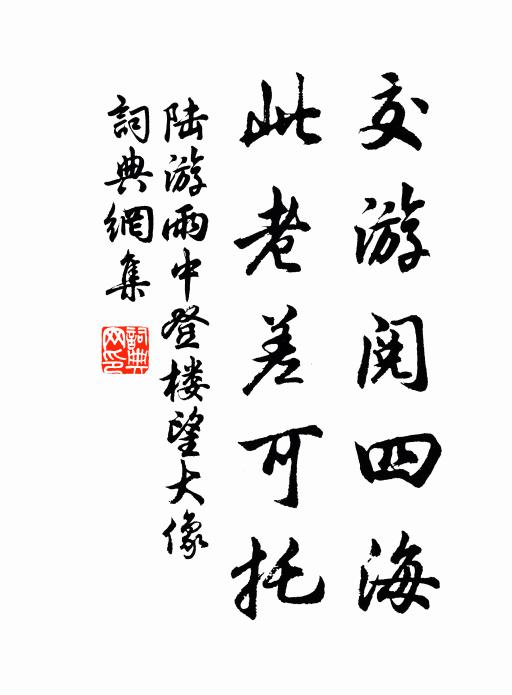 交游阅四海
此老差可托
陆游雨中登楼望大像
詞典網集
詞典
网印